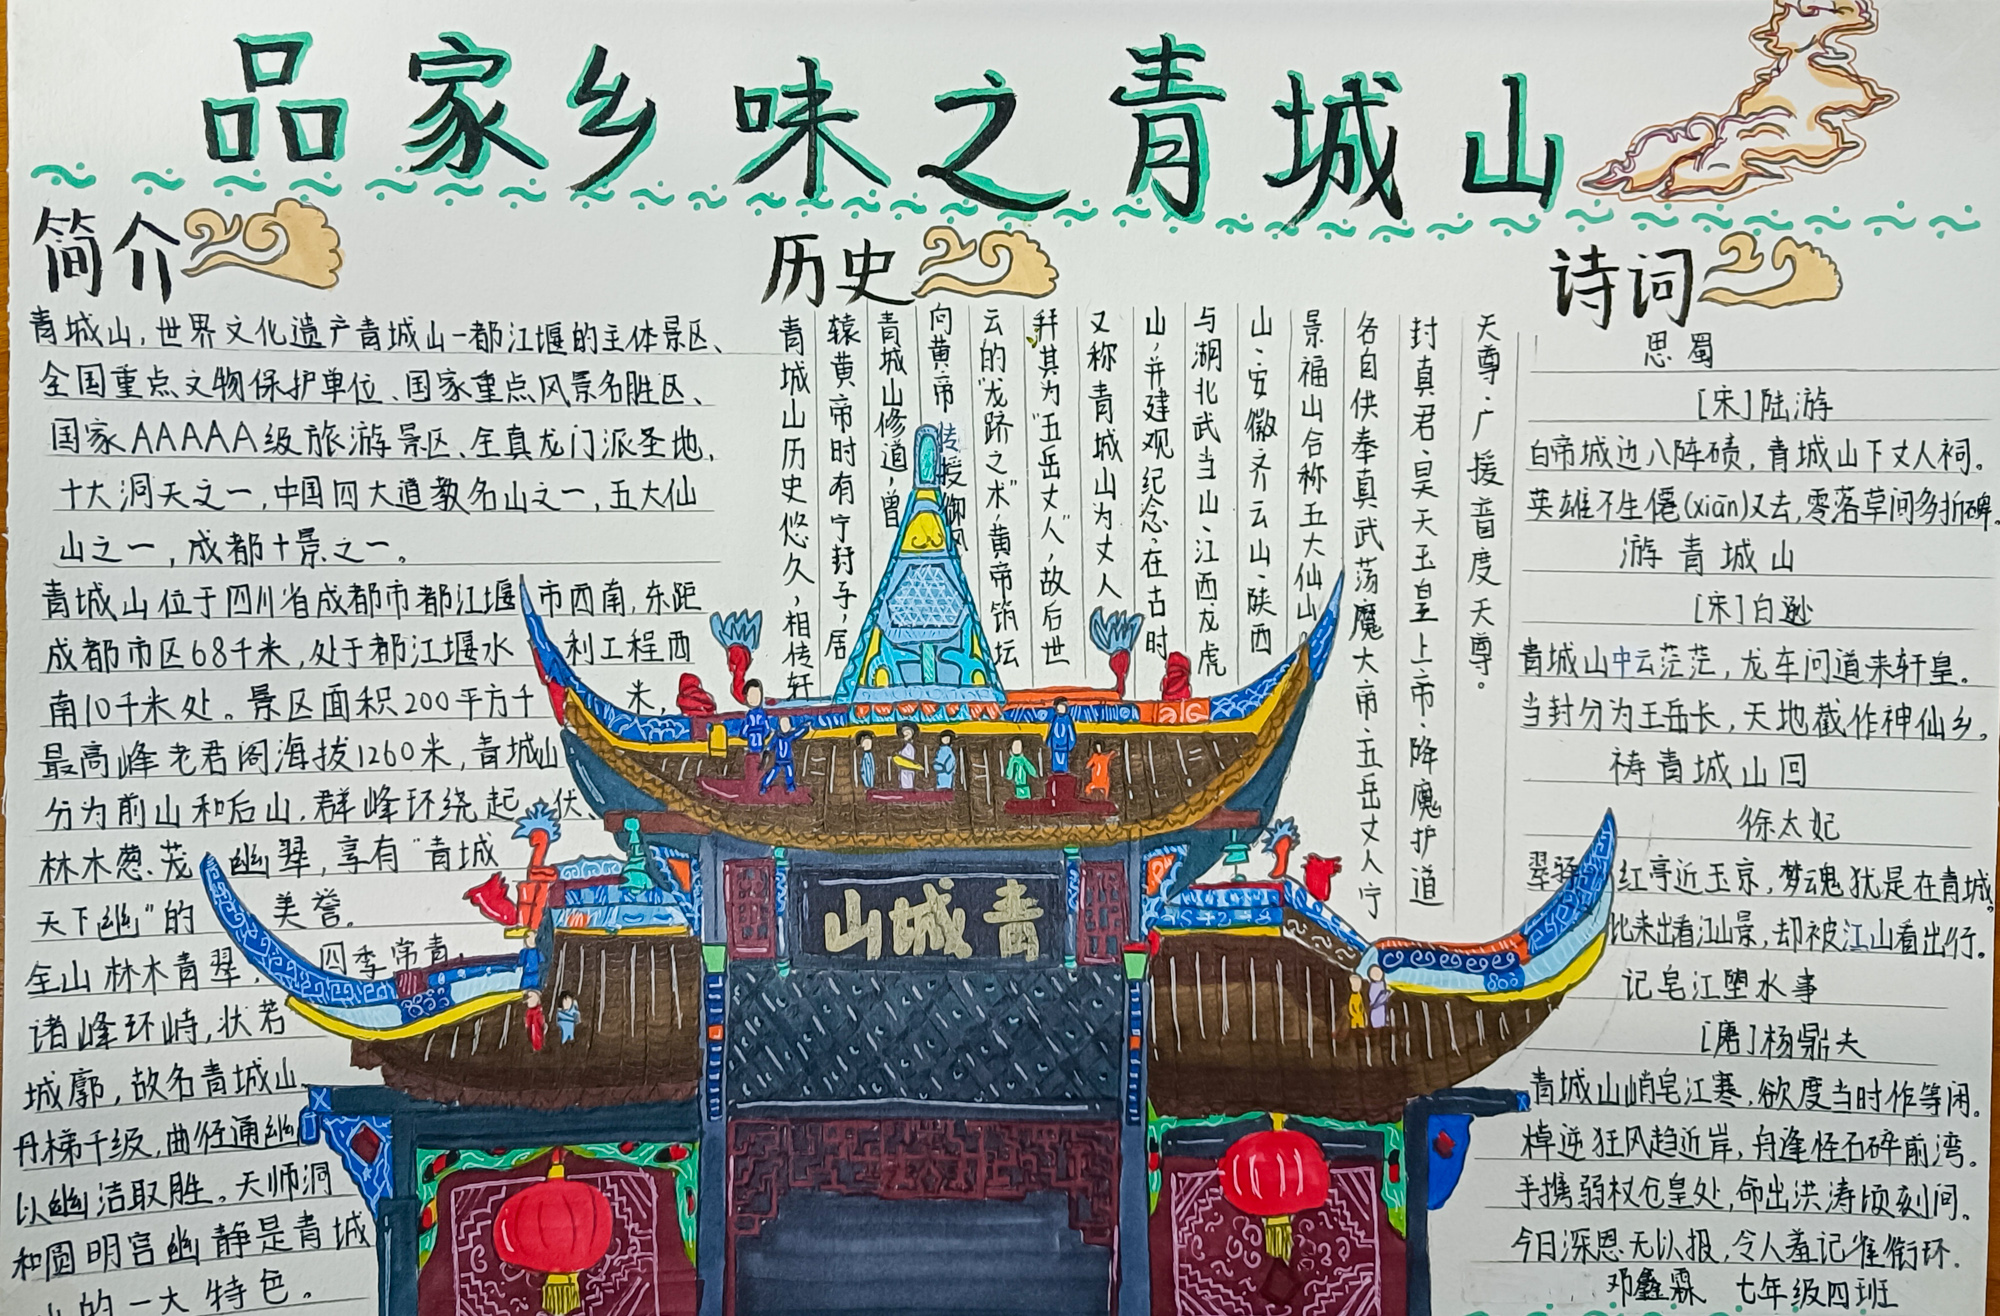 品家乡味之青城山
简介
青城山，世界文化遗产青城山一都江堰的主体景区、
全国重点文物保护单位、国家重点风景名胜区、
国家AAAAA级旅游景区、全真龙门派圣地，
十大洞天之一，中国四大道教名山之一，五大仙
山之一，成都十景之一。
青城山位于四川省成都市都江堰市西南，东距
成都市区68千米，处于都江堰水利工程西
南10千米处。景区面积200平方千米，
最高峰老君阁海拔1260米，青城山
分为前山和后山，群峰环绕起伏
林木葱茏幽翠，享有"青城
天下幽"的美誉。
全山林木青翠，四季常青，
诸峰环峙，状若
城廓，故名青城山
丹梯千级，曲径通幽
以幽洁取胜。天师洞
和圆明宫幽静是青城
山的一大特色。
历史
青城山历史悠久，相传轩
辕黄帝时有宁封子，居
青城山修道，曾
向黄帝传授御风
云的"龙跻之术"，黄帝筑坛
拜其为"五岳丈人"，故后世
又称青城山为丈人
山，并建观纪念。在古时
与湖北武当山、江西龙虎
山、安徽齐云山、陕西
景福山合称五大仙山
各自供奉真武荡魔大帝、五岳丈人宁
封真君、昊天玉皇上帝、降魔护道
天尊、广援普度天尊。
诗词
思蜀
[宋]陆游
白帝城边八阵碛，青城山下丈人祠。
英雄不生僊(xiān)又去，零落草间多折碑。
游青城山
[宋]白逊
青城山中云茫茫，龙车问道来轩皇。
当封分为王岳长，天地截作神仙乡。
祷青城山回
徐太妃
翠驿红亭近玉京，梦魂犹是在青城。
比来出看江山景，却被江山看出行。
记皂江堕水事
[唐]杨鼎夫
青城山峭皂江寒，欲度当时作等闲。
棹逆狂风趋近岸，舟逢怪石碎前湾。
手携弱杖仓皇处，命出洪涛顷刻间。
今日深恩无以报，令人羞记雀衔环.
邓鑫霖 七年级四班
青城山